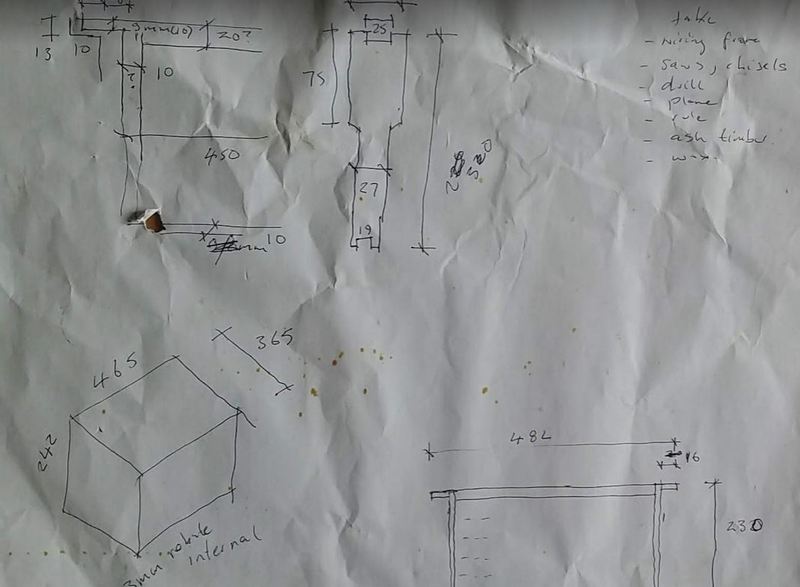 13
10
9mm(10)
20?
?
10
450
10
25
75
27
19
take
- wiring frame
- saws, chisels
- drill
- plane
- rule
- ash timber
- wax
465
365
242
3mm rebate
internal
484
16
230